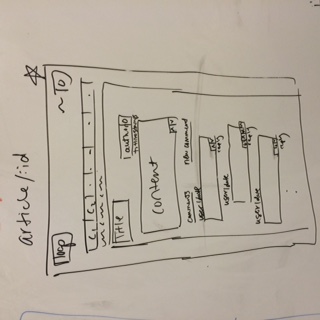 article/:id
logo
C1 C2
Title
author
timestamp
content
comments new comment
user/date
reply
user/date
reply
user/date
reply